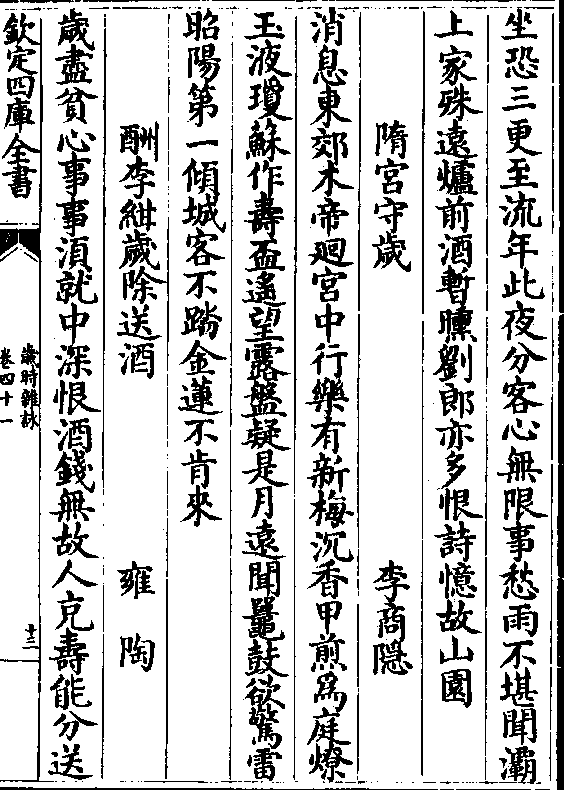 坐恐三更至流年此夜分客心無限事愁雨不堪聞灞
上家殊遠爐前酒暫醺劉郎亦多恨詩憶故山園
隋宮守歲　李商隱
消息東郊木帝廻宮中行樂有新梅沉香甲煎爲庭燎
玉液瓊蘇作壽盃遙望露盤疑是月遠聞鼉鼓欲驚雷
昭陽第一傾城客不踏金蓮不肯來
酬李紺歲除送酒　雍陶
歲盡貧心事事湏就中深恨酒錢無故人充壽能分送
欽定四庫全書
歲時雜詠
卷四十一
十三